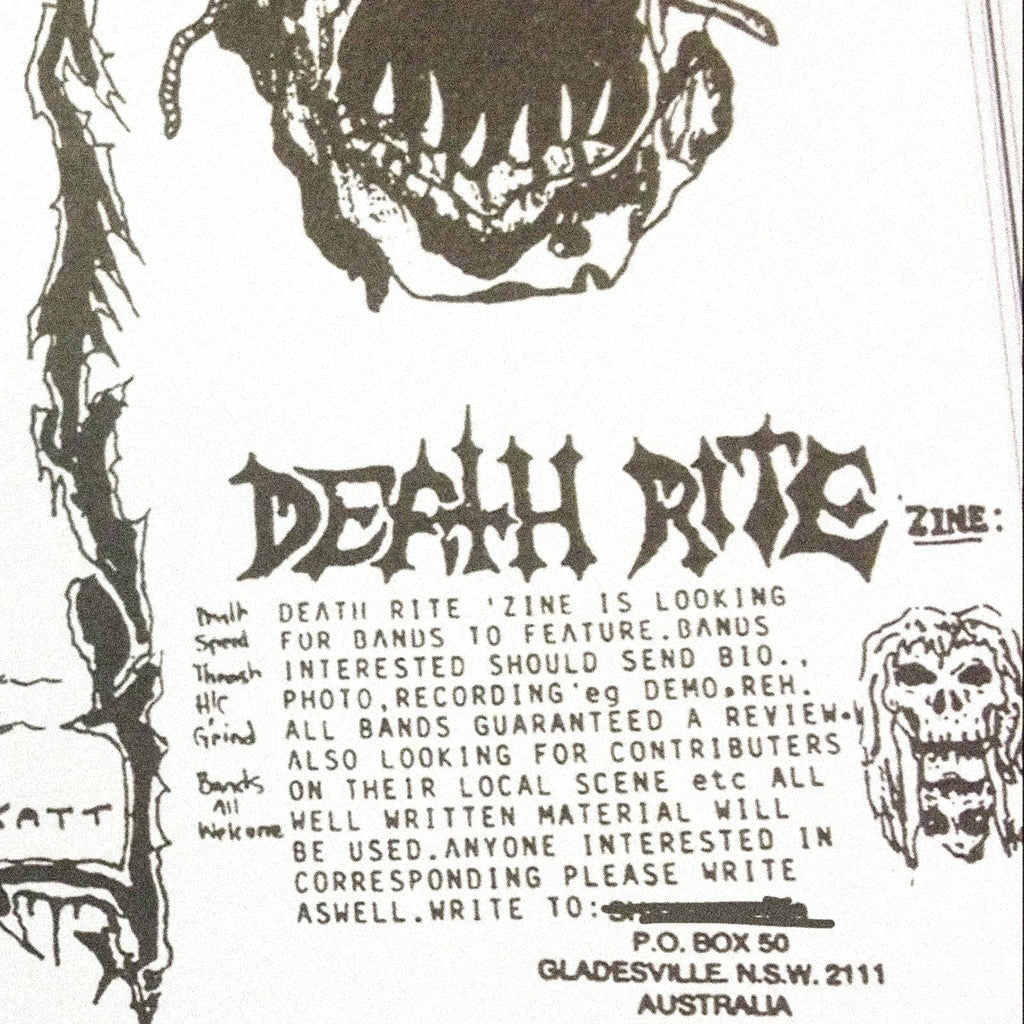 DEATH RITE 'ZINE:
Death
Speed
Thrash
H/C
Grind
Bands
All
Welcome
DEATH RITE 'ZINE IS LOOKING
FOR BANDS TO FEATURE.BANDS
INTERESTED SHOULD SEND BIO..
PHOTO,RECORDING'eg DEMO,REH.
ALL BANDS GUARANTEED A REVIEW.
ALSO LOOKING FOR CONTRIBUTERS
ON THEIR LOCAL SCENE etc ALL
WELL WRITTEN MATERIAL WILL
BE USED.ANYONE INTERESTED IN
CORRESPONDING PLEASE WRITE
ASWELL.WRITE TO:
P.O. BOX 50
GLADESVILLE. N.S.W. 2111
AUSTRALIA